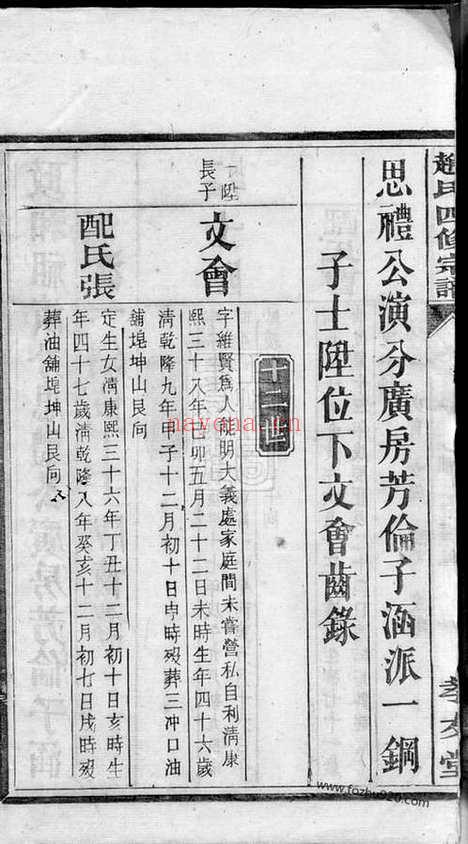 趙氏四修宗譜
孝友堂
思禮公演分廣房芳倫子涵派一鋼
子士陞位下文會齒錄
十二世
士陞
長子
文會
字維賢爲人能明大義處家庭間未嘗營私自利清康
熙三十八年己卯五月二十二日未時生年四十六歲
清乾隆九年甲子十二月初十日申時歿葬三冲口油
舖堤坤山艮向
配氏張
定生女清康熙三十六年丁丑十二月初十日亥時生
年四十七歲清乾隆八年癸亥十二月初七日戌時歿
葬油舖堤坤山艮向
navena.com
www.fozhu920.com